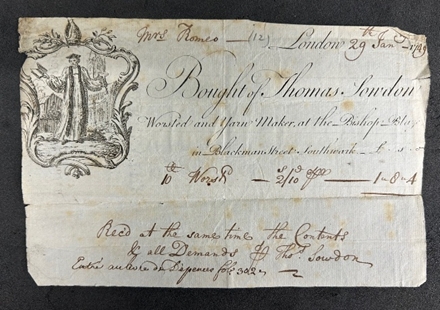 Mrs Romeo — (12) London 29th Jany 1749
Bought of Thomas Sowdon
Worsted and Yarn Maker, at the Bishop Blaze
in Blackman Street Southwark £ s
10 lb Worsd — 2s/10d — 1 - 8 - 4
Recd at the same time the Contents
& all Demands Thos. Sowdon